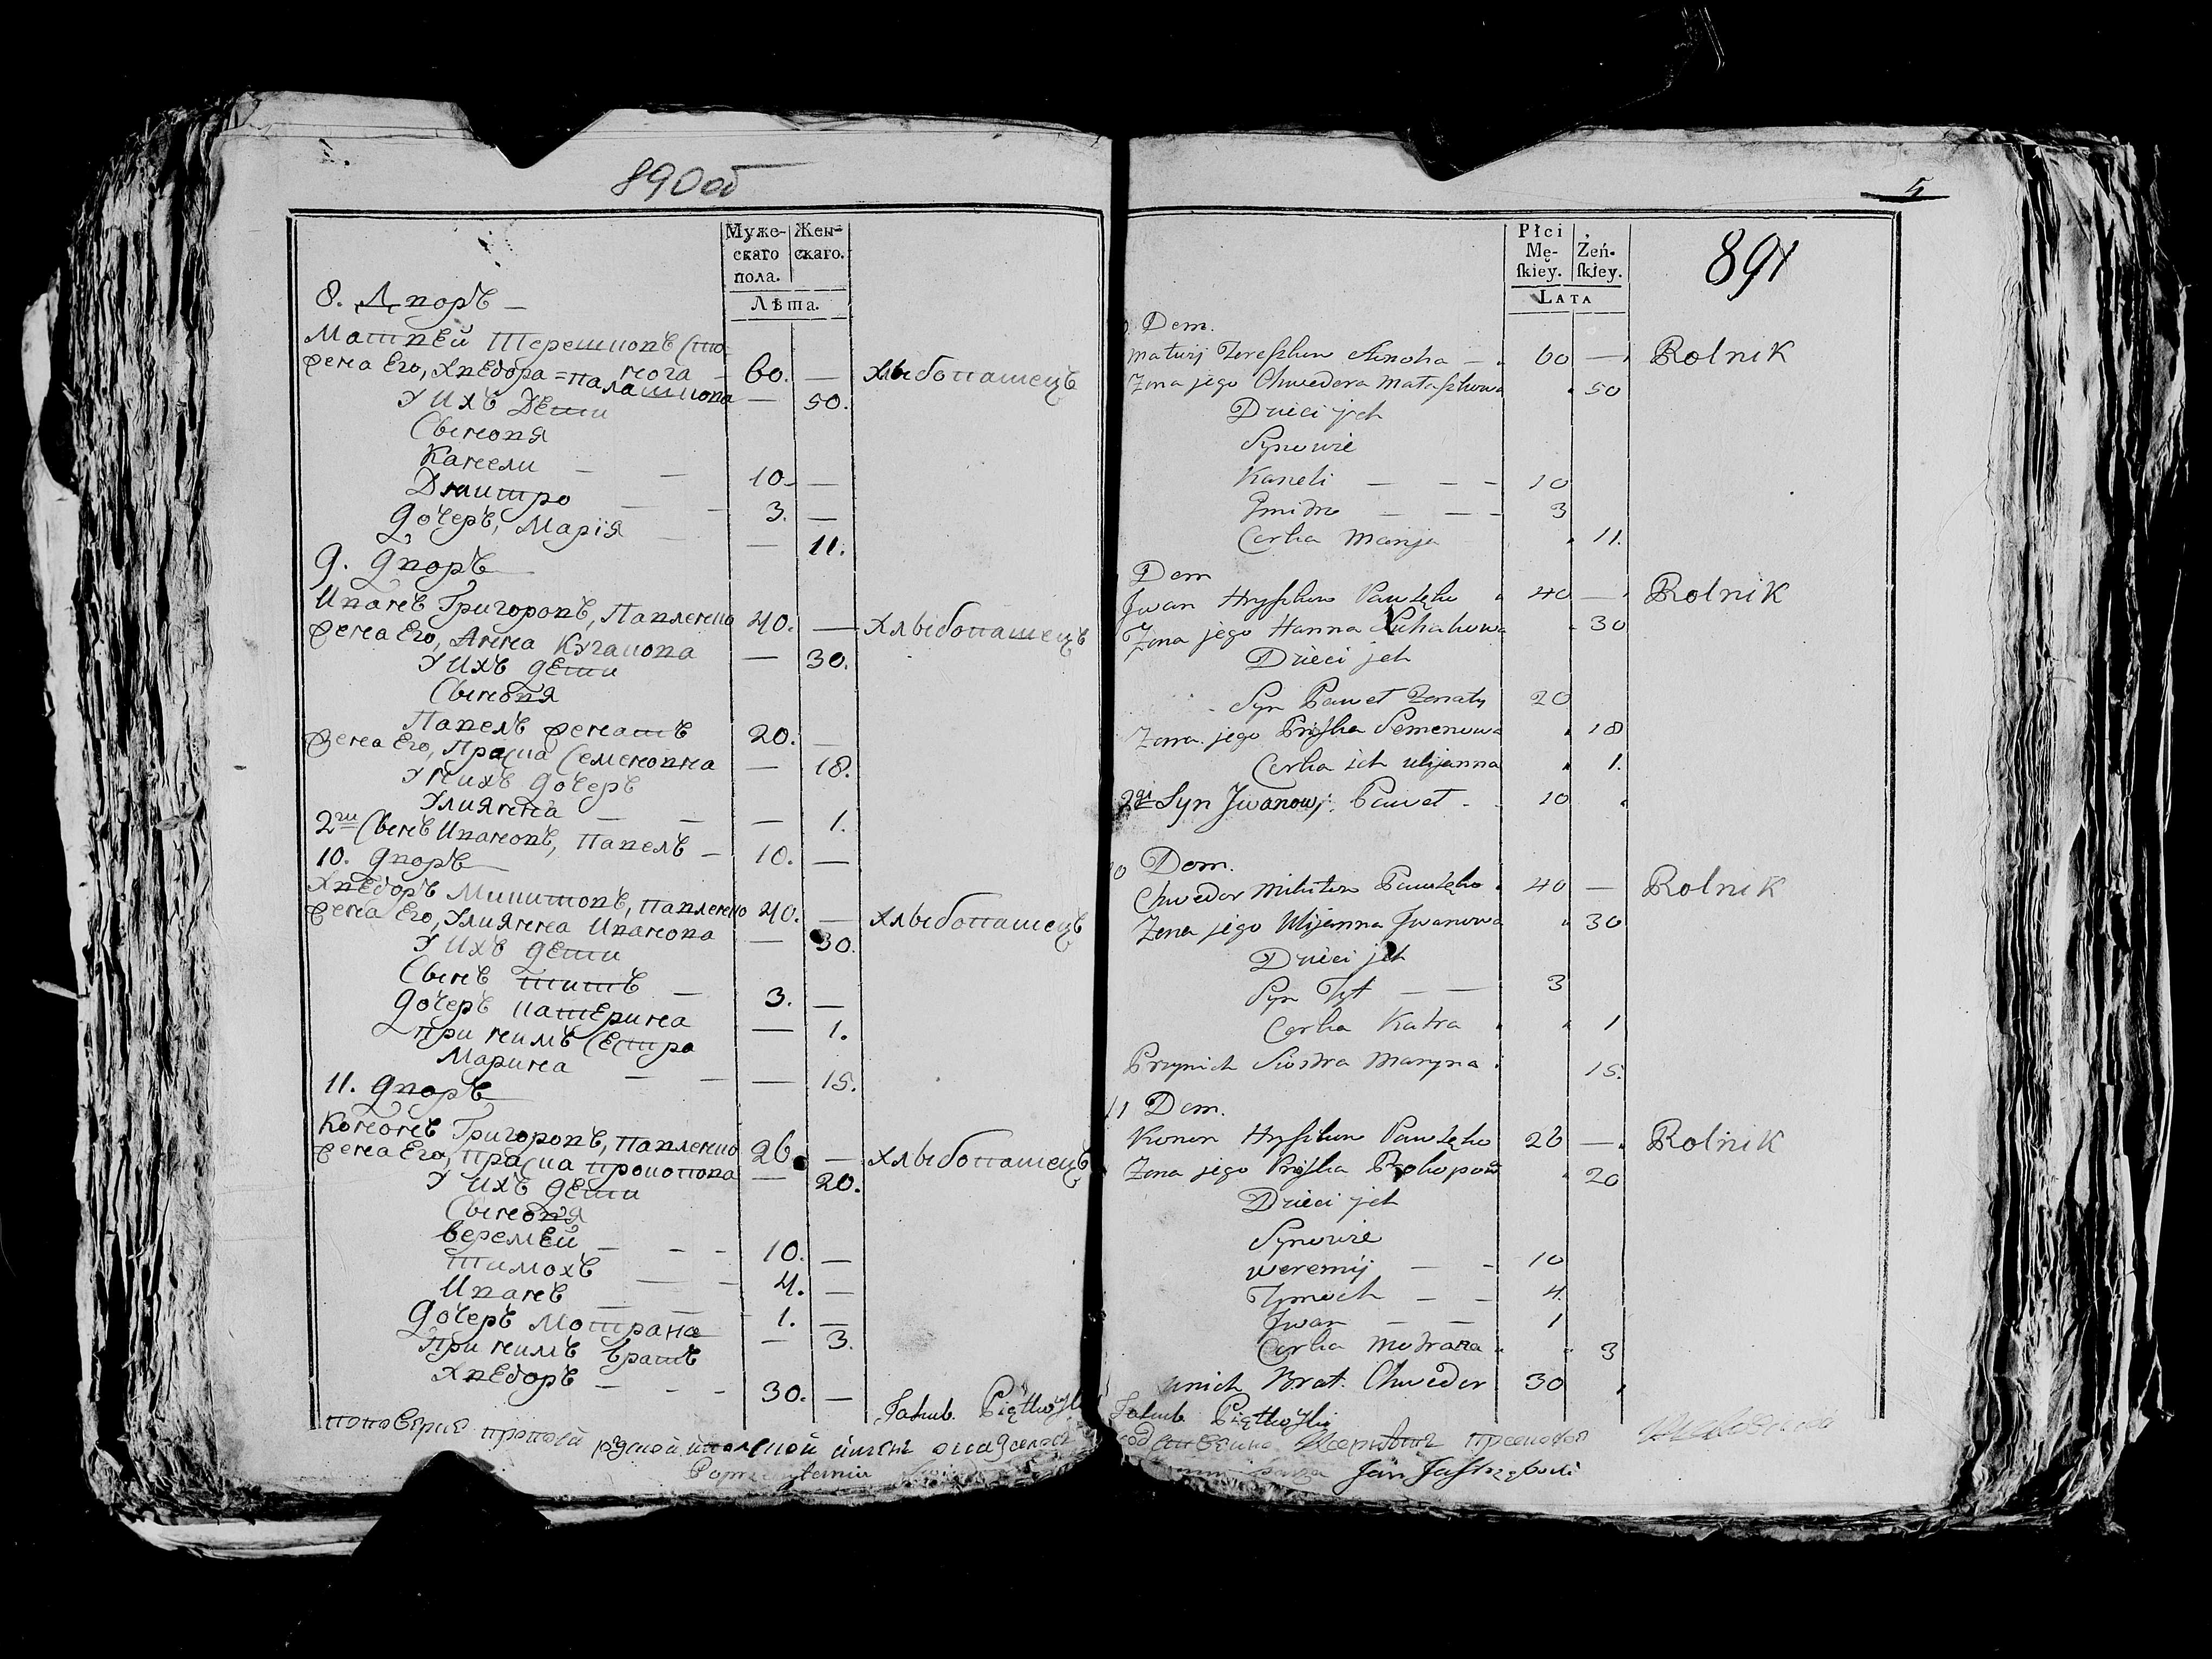 890об
Муже-
скаго
пола.
Жен-
скаго.
Лѣта.
8. Дворъ —
Матвей Терешковъ Сто
нога — 60. — хлыбопашецъ
жена Его, Хведора Палашкова — 50.
У ихъ Дети
Сыновя
Канели — — 10 —
Дмитро — — 3. —
Дочеръ, Марія — — 11.
9. Дворъ
Иванъ Григоровъ, Павленко 40. — хлыбопашецъ
жена Его, Анна Кугакова — 30.
У ихъ дети
Сыновя
Павелъ женатъ 20. —
жена Его, Праска Семеновна — 18.
У нихъ дочеръ
Улиянна — — — 1.
2ги Сынъ Ивановъ, Павелъ — 10. —
10. Дворъ
Хведоръ Микитовъ, Павленко 40. — хлыбопашецъ
жена Его, Улиянна Иванова — 30.
У ихъ дети
Сынъ титъ — 3. —
Дочеръ катерина — 1.
при нимъ Сестра
Марина — — — 15.
11. Дворъ
Кононъ Григоровъ, Павленко 26 — хлыбопашецъ
жена Его, Праска Прокопова — 20.
У ихъ дети
Сыновя
веремей — - - 10. —
тимохъ — - 4. —
Иванъ — — 1. —
Дочеръ Мотрана — 3.
При нимъ братъ
Хведоръ — - - 30. —
Jakub Piątkowski
Płci
Mę-
ſkiey.
Żeń-
ſkiey.
LATA
5
891
Dom.
Matwij Tereszkow Stonoha — 60 — Rolnik
Zona jego Chwedora Palaszkowa 50
Dzieci jch
Synowie
Kaneli — — - 10
Dmidro — — - 3
Corka Marija 11.
Dom
Jwan Hryszkow Pawlęko 40 — Rolnik
Zona jego Hanna Kuhakowa 30
Dzieci jch
Syn Paweł Zonaty 20
Zona jego Pryska Semenowa 18
Corka ich Ulijanna 1.
2gi Syn Jwanowi. Paweł - 10
10 Dom.
Chwedor Mikitow Pawlęko 40 — Rolnik
Zona jego Ulijanna Jwanowa 30
Dzieci jch
Syn Tyt — — 3
Corka Katra 1
Przynich Siostra Maryna 15.
11 Dom.
Konon Hryszkow Pawlęko 26 — Rolnik
Zona jego Pryska Prokopow 20
Dzieci jch
Synowie
Weremij — - 10
Tymoch — — 4.
Jwan — — 1
Corka Motrana 3
unich Brat. Chwedor 30
Jakub Piątkowski
Jan Jastrzębski